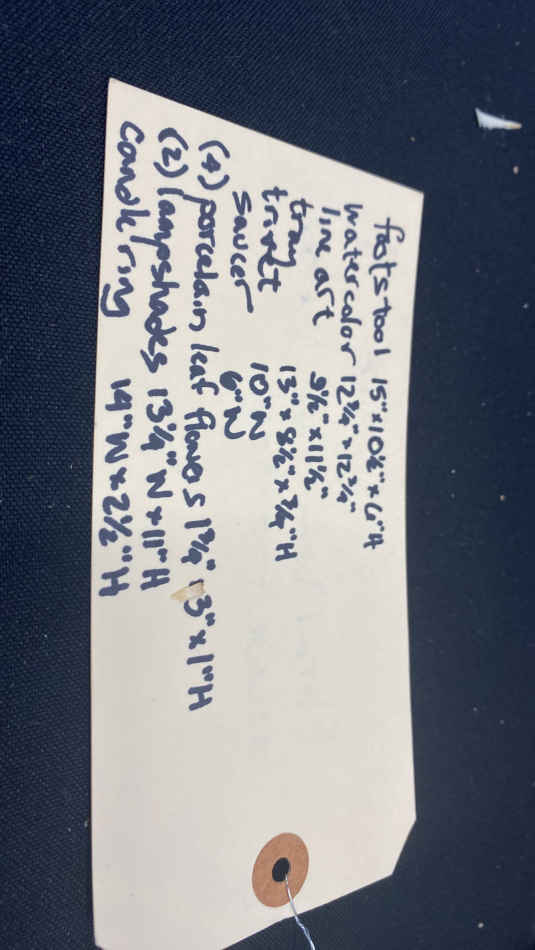 footstool 15" x 10½" x 6"H
watercolor 12¾" x 12¾"
line art 9½" x 11½"
tray 13" x 8½" x ¾"H
trivet 10"W
saucer 6"W
(4) porcelain leaf flowers 1¾" 3" x 1"H
(2) lampshades 13¼"W x 11"H
candle ring 14"W x 2½"H